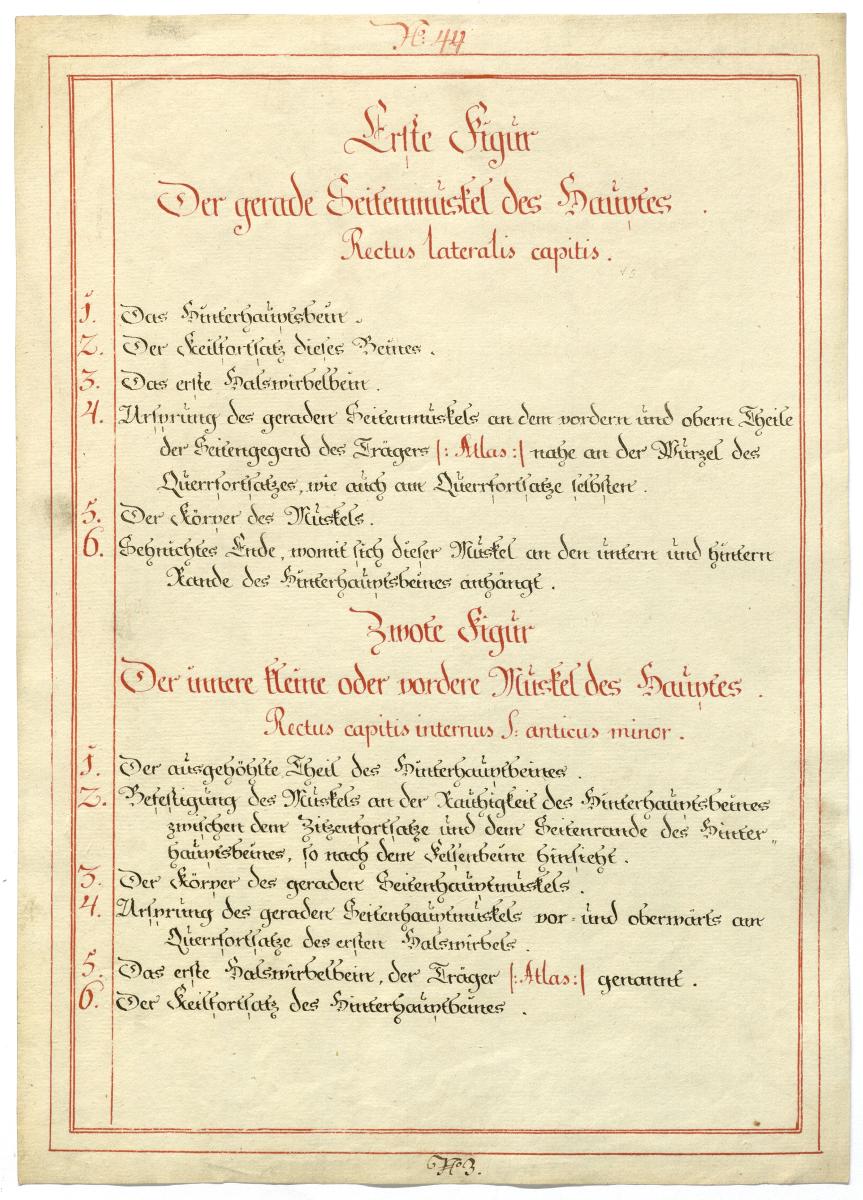 No: 44
Erste Figur
Der gerade Seitenmuskel des Hauptes.
Rectus lateralis capitis.
1. Das Hinterhauptsbein.
2. Der Keilfortsatz dieses Beines.
3. Das erste Halswirbelbein.
4. Ursprung des geraden Seitenmuskels an dem vordern und obern Theile
der Seitengegend des Trägers |: Atlas :| nahe an der Wurzel des
Querrfortsatzes, wie auch am Querrfortsatze selbsten.
5. Der Körper des Muskels.
6. Sehnichtes Ende, womit sich dieser Muskel an den untern und hintern
Rande des Hinterhauptsbeines anhängt.
Zwote Figur
Der innere kleine oder vordere Muskel des Hauptes.
Rectus capitis internus S: anticus minor.
1. Der ausgehöhlte Theil des Hinterhauptbeines.
2. Befestigung des Muskels an der Rauhigkeit des Hinterhauptsbeines
zwischen dem Zitzenfortsatze und dem Seitenrande des Hinter„
hauptsbeines, so nach dem Felsenbeine hinsieht.
3. Der Körper des geraden Seitenhauptmuskels.
4. Ursprung des geraden Seitenhauptmuskels vor= und oberwärts am
Querrfortsatze des ersten Halswirbels.
5. Das erste Halswirbelbein, der Träger |: Atlas :| genannt.
6. Der Keilfortsatz des Hinterhauptbeines.
No 3.